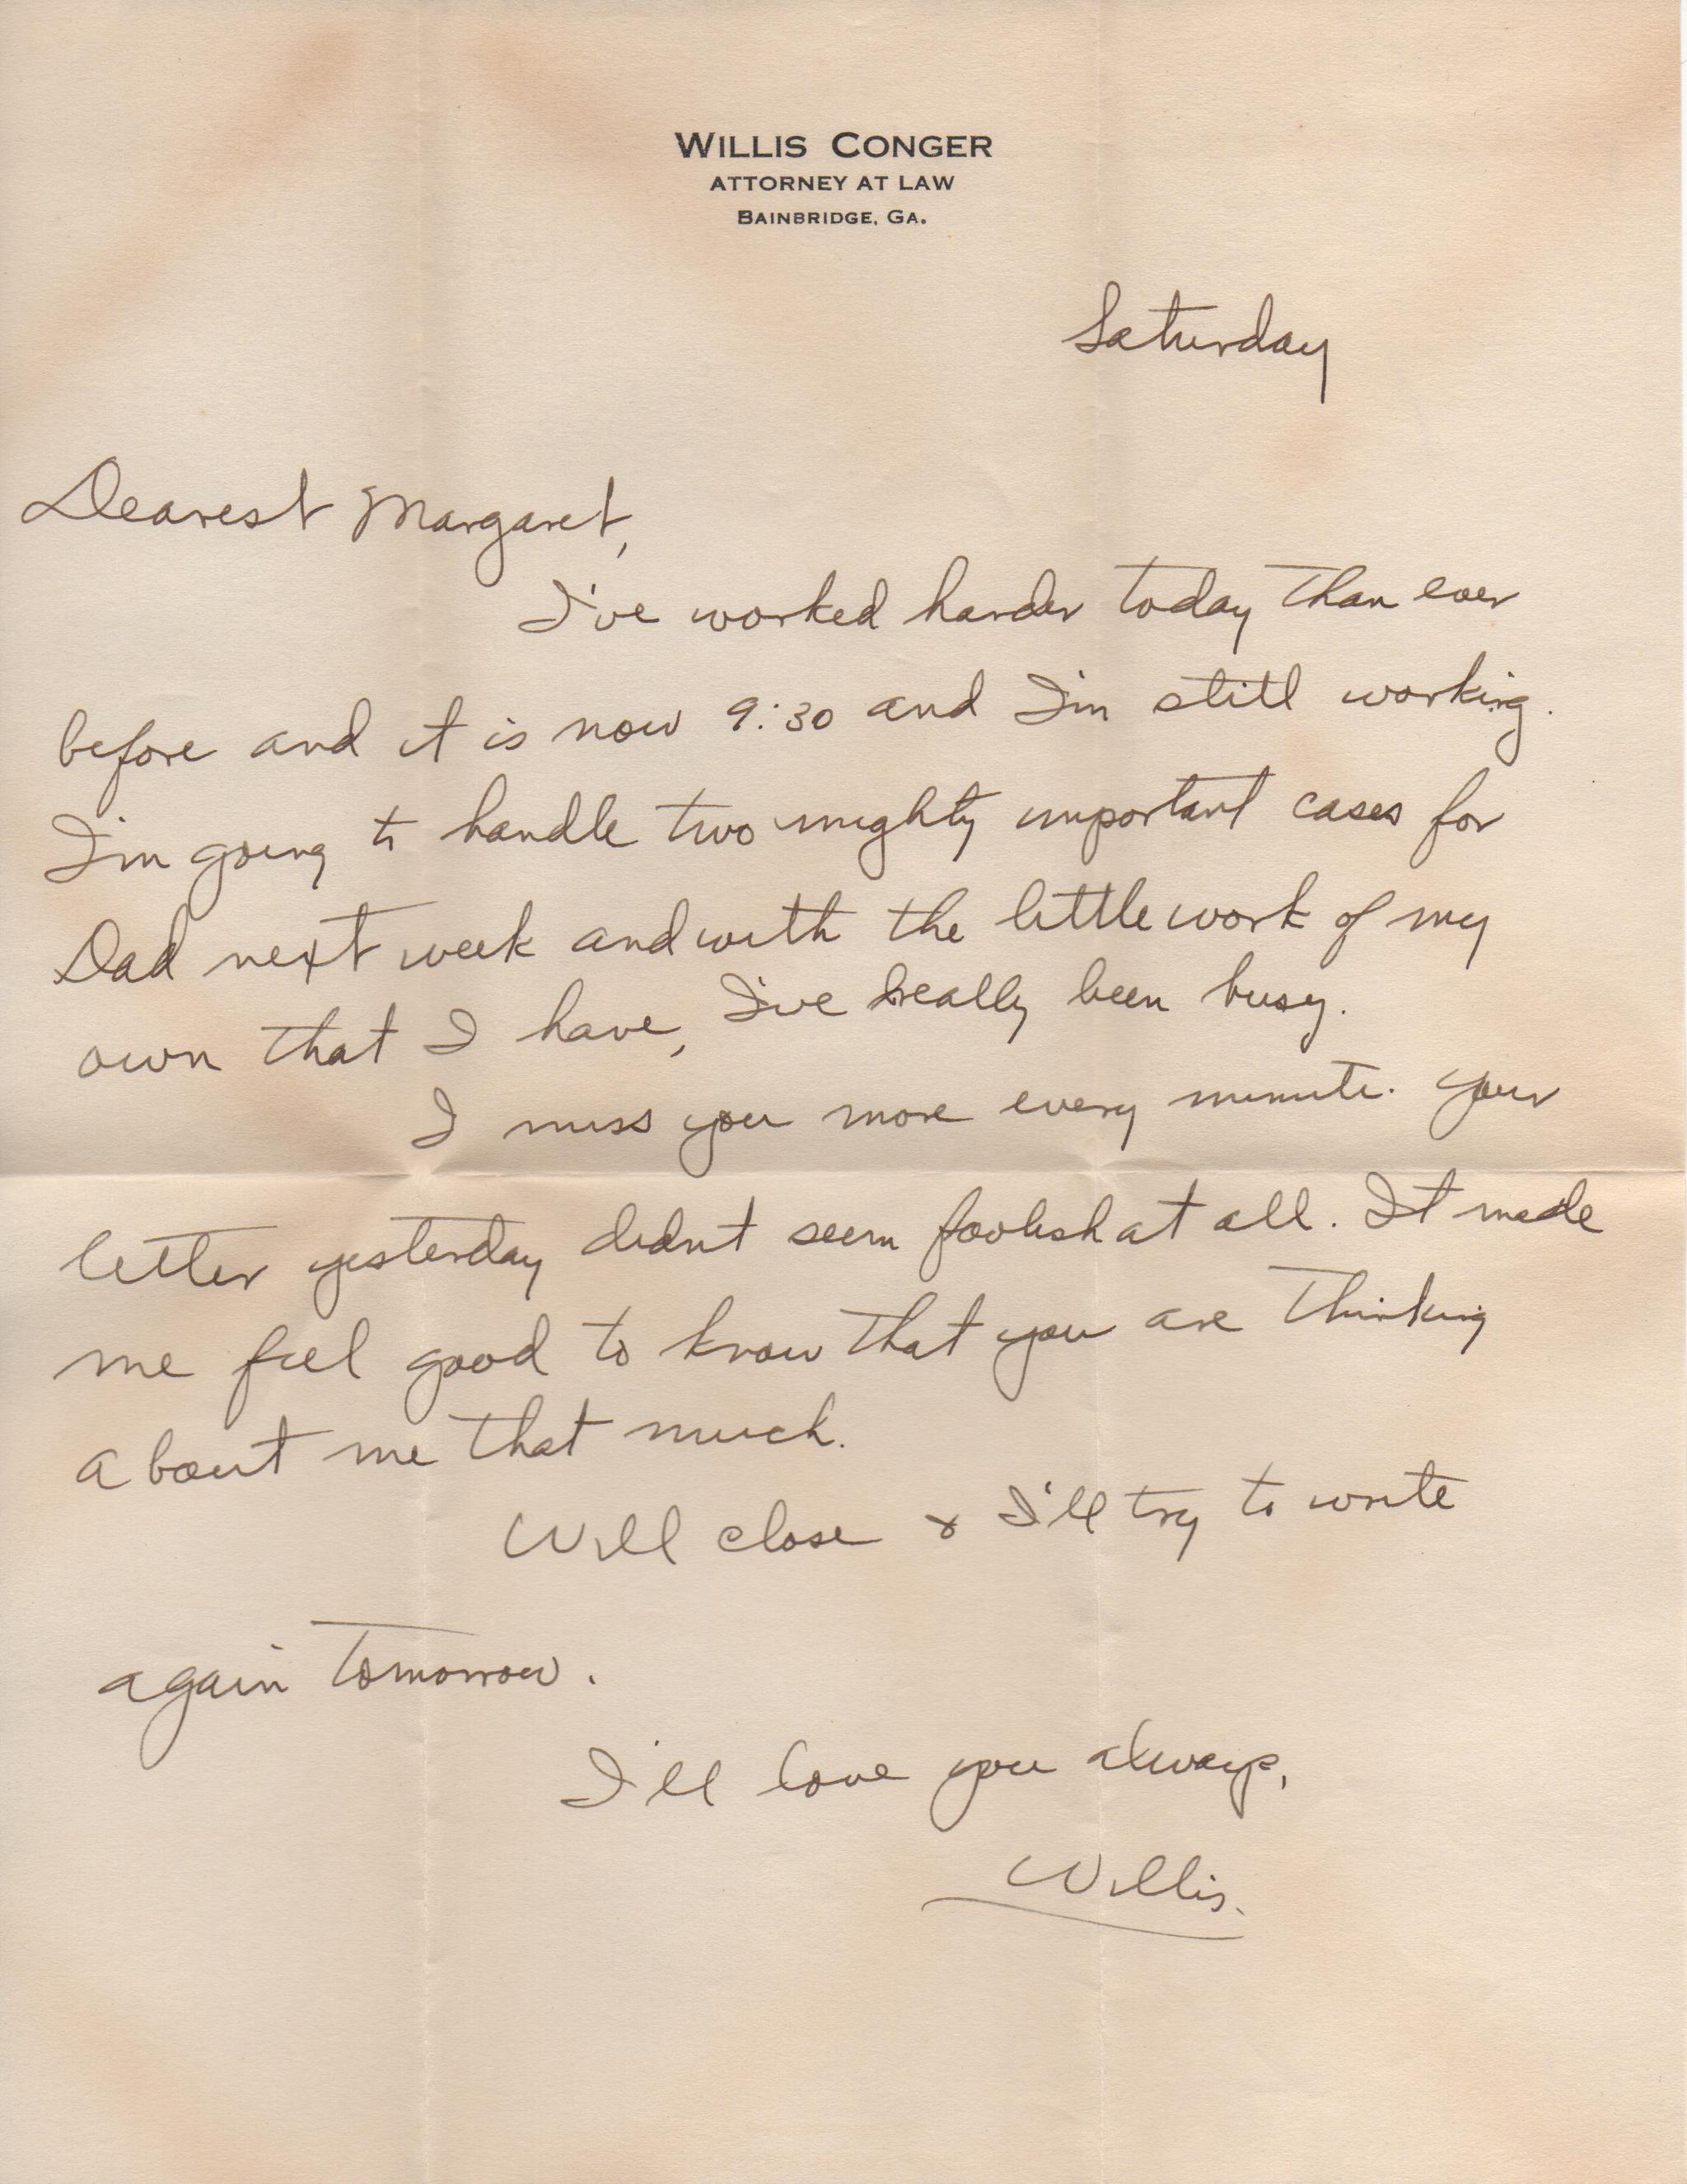 WILLIS CONGER
ATTORNEY AT LAW
BAINBRIDGE, GA.
Saturday
Dearest Margaret,
I've worked harder today than ever
before and it is now 9:30 and I'm still working.
I'm going to handle two mighty important cases for
Dad next week and with the little work of my
own that I have, I've really been busy.
I miss you more every minute. Your
letter yesterday didnt seem foolish at all. It made
me feel good to know that you are thinking
about me that much.
Will close & I'll try to write
again tomorrow.
I'll love you always,
Willis.